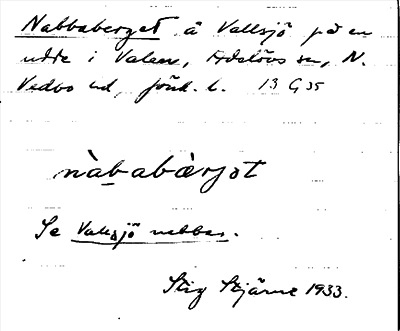 Nabbaberget å Vallsjö på en
udde i Valen, Adelövs sn, N.
Vedbo hd, Jönk. l. 13 G 35
nàb̲abàrjət
Se Vallsjö nabbar.
Stig Stjärne 1933.